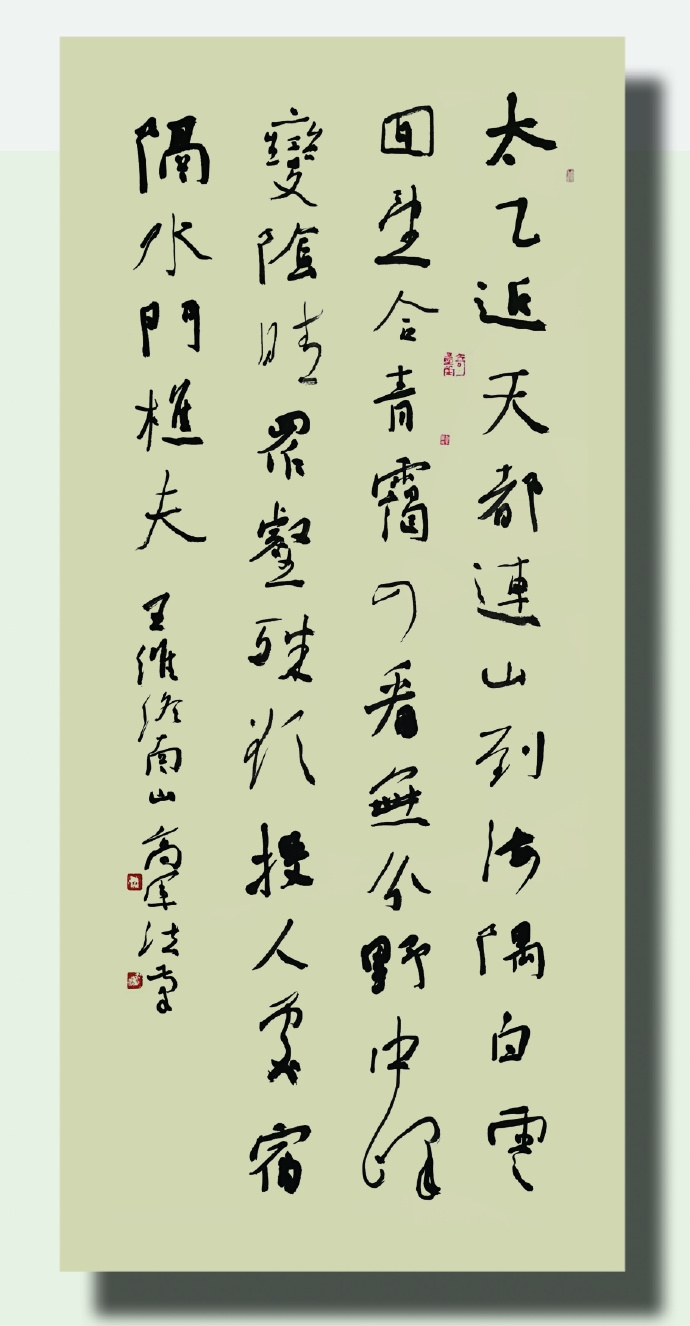 太乙近天都連山到海隅白雲
回望合青靄入看無分野中峰
變陰晴眾壑殊欲投人處宿
隔水問樵夫 王維終南山 高軍法書